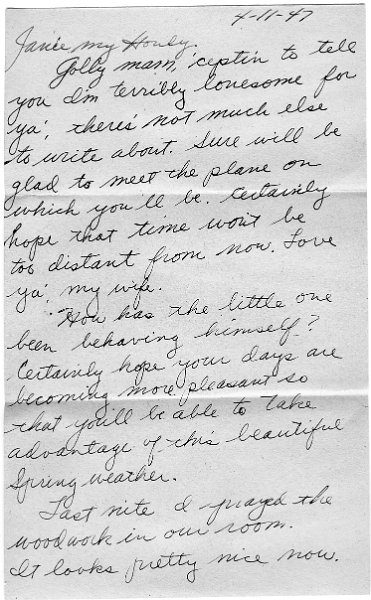 4-11-47
Janie my Honey.
Golly mam, 'ceptin to tell
you I'm terribly lonesome for
ya', there's not much else
to write about. Sure will be
glad to meet the plane on
which you'll be. Certainly
hope that time won't be
too distant from now. Love
ya', my wife.
How has the little one
been behaving himself?
Certainly hope your days are
becoming more pleasant so
that you'll be able to take
advantage of this beautiful
Spring weather.
Last nite I sprayed the
woodwork in our room.
It looks pretty nice now.